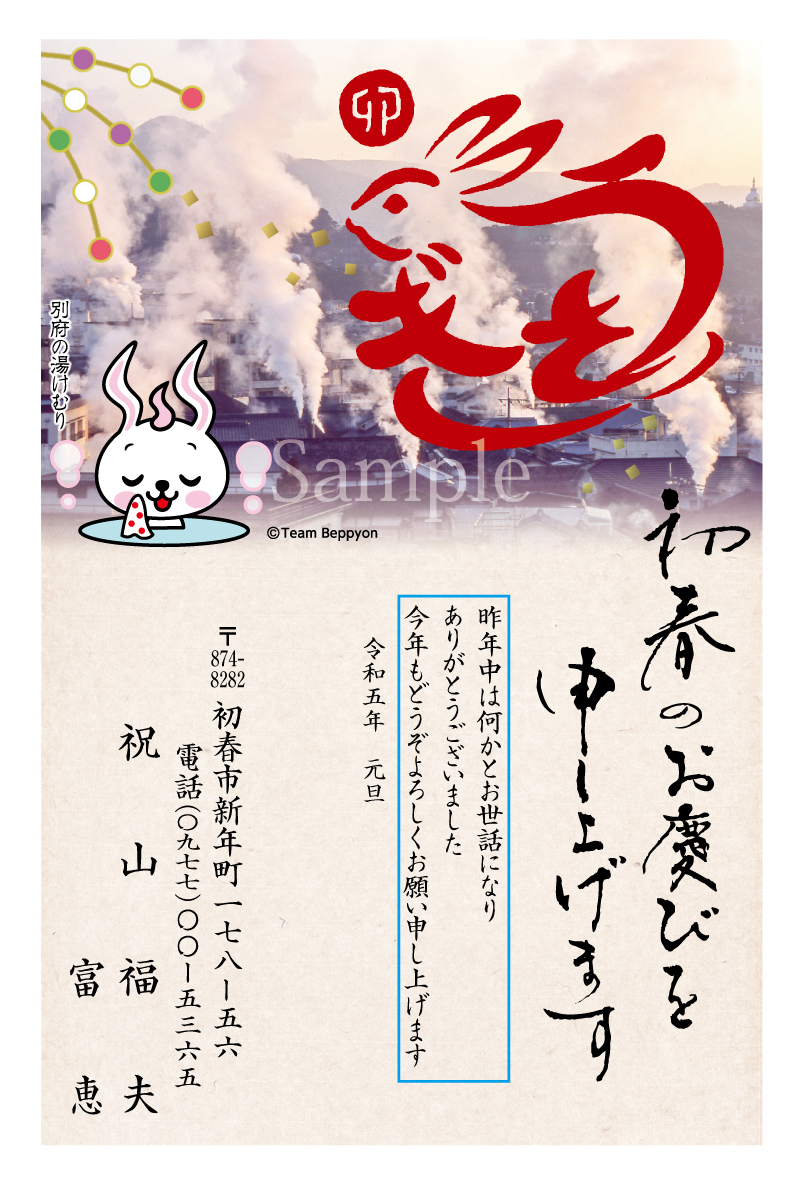 卯
うさぎ
別府の湯けむり
Sample
©Team Beppyon
初春のお慶びを
申し上げます
昨年中は何かとお世話になり
ありがとうございました
今年もどうぞよろしくお願い申し上げます
令和五年　元旦
〒874-8282 初春市新年町一七八ー五六
電話(〇九七七)〇〇ー五三六五
祝山福夫
富恵